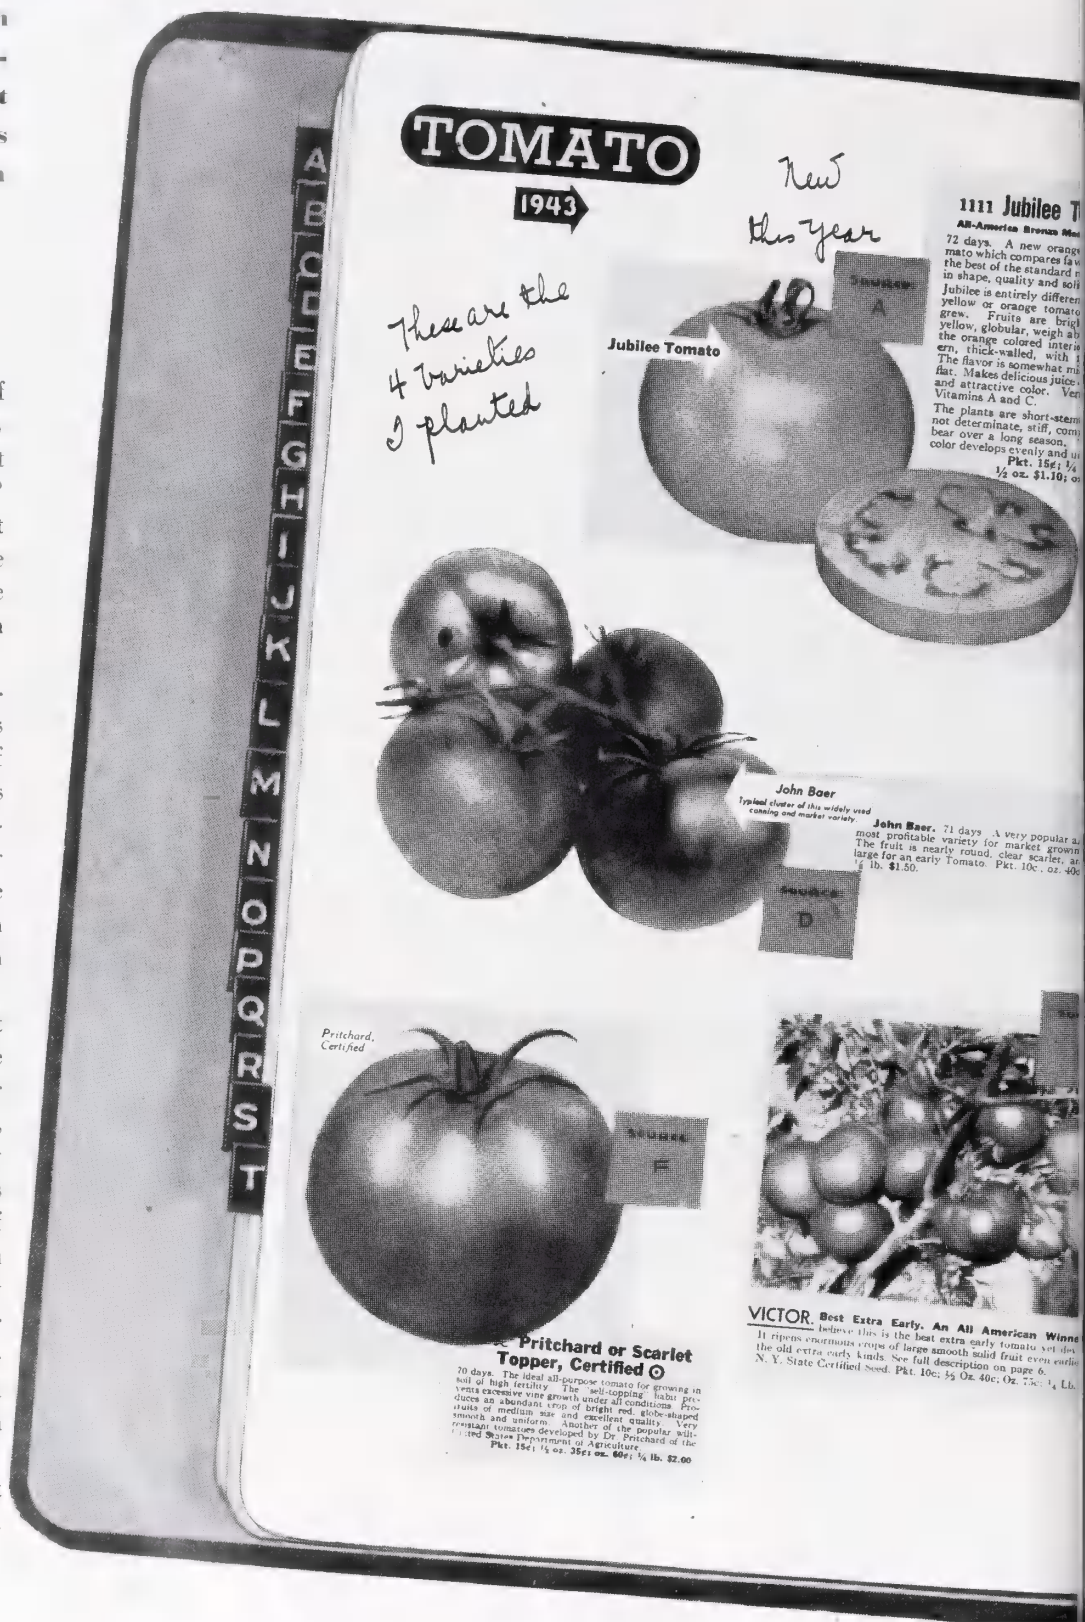 TOMATO
1943
New
this Year
These are the
4 Varieties
I planted
A
B
C
D
E
F
G
H
I
J
K
L
M
N
O
P
Q
R
S
T
Source:
A
Jubilee Tomato
1111 Jubilee T
All-America Bronze Me
72 days. A new orang
mato which compares fav
the best of the standard
in shape, quality and soli
Jubilee is entirely differen
yellow or orange tomato
grew. Fruits are brigh
yellow, globular, weigh ab
the orange colored interi
ern, thick-walled, with
The flavor is somewhat mi
flat. Makes delicious juice
and attractive color. Ver
Vitamins A and C.
The plants are short-stem
not determinate, stiff, com
bear over a long season.
color develops evenly and u
Pkt. 15¢; ¼
½ oz. $1.10; o
John Baer
Typical cluster of this widely used
canning and market variety.
John Baer. 71 days A very popular a
most profitable variety for market grown
The fruit is nearly round, clear scarlet, an
large for an early Tomato. Pkt. 10c, oz. 40c
lb. $1.50.
Source:
D
Pritchard,
Certified
Source
Pritchard or Scarlet
Topper, Certified
70 days. The ideal all-purpose tomato for growing in
soil of high fertility. The "self-topping" habit pre-
vents excessive vine growth under all conditions. Pro-
duces an abundant crop of bright red, globe-shaped
fruits of medium size and excellent quality. Very
smooth and uniform. Another of the popular wilt-
resistant tomatoes developed by Dr. Pritchard of the
United States Department of Agriculture.
Pkt. 15¢; ½ oz. 35¢; oz. 60¢; ¼ lb. $2.00
VICTOR. Best Extra Early. An All American Winne
believe this is the best extra early tomato yet dev
It ripens enormous crops of large smooth solid fruit even earlie
the old extra early kinds. See full description on page 6.
N. Y. State Certified Seed. Pkt. 10c; ½ Oz. 40c; Oz. 75c; ¼ Lb.